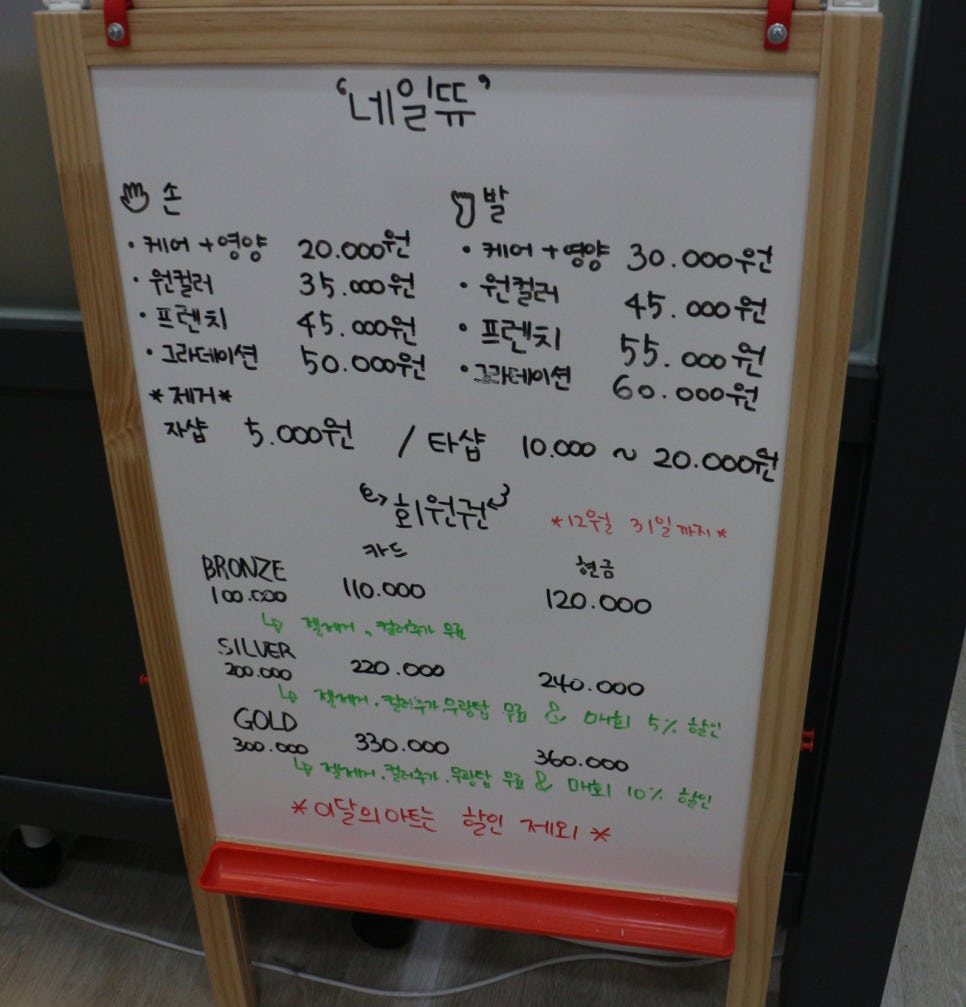 '네일뜌'
손
· 케어 + 영양 20.000원
· 원컬러 35.000원
· 프렌치 45.000원
· 그라데이션 50.000원
발
· 케어 + 영양 30.000원
· 원컬러 45.000원
· 프렌치 55.000원
· 그라데이션 60.000원
*제거*
자샵 5.000원 / 타샵 10.000 ~ 20.000원
회원권 *12월 31일까지*
카드 현금
BRONZE
100.000 110.000 120.000
↳ 젤제거, 컬러추가 무료
SILVER
200.000 220.000 240.000
↳ 젤제거.컬러추가.무광탑 무료 & 매회 5% 할인
GOLD
300.000 330.000 360.000
↳ 젤제거.컬러추가.무광탑 무료 & 매회 10% 할인
*이달의아트는 할인 제외*